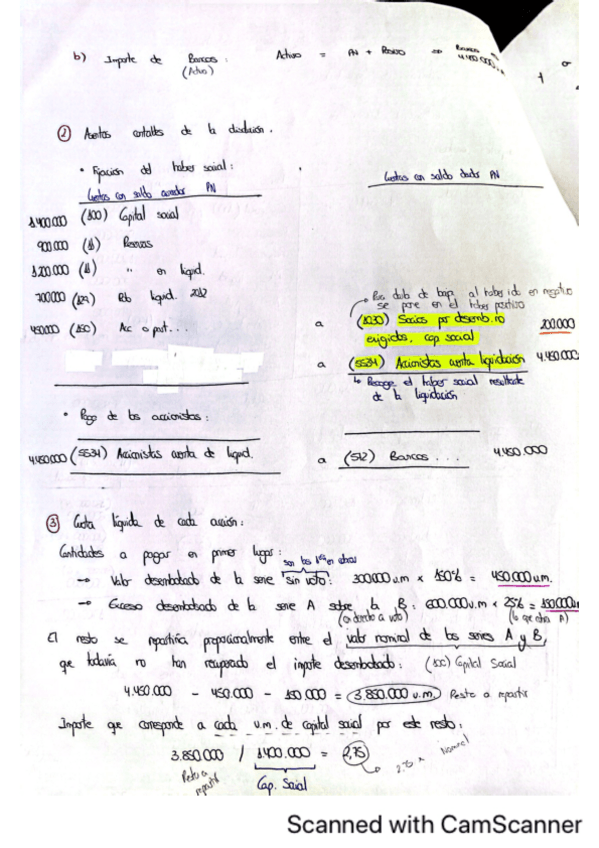 b) Importe de Bancos : Activo = PN + Pasivo
(Activo)
② Asientos contables de la disolución.
• Fijación del haber social :
Cuentas con saldo acreedor PN
Cuentas con saldo deudor PN
1.400.000 (100) Capital social
900.000 (11) Reservas
1.200.000 (11) " en liquid.
700.000 (129) Rdo liquid. 2012
450.000 (150) Ac o part. ...
Por dado de baja, al haber ido en negativo
se pone en el haber positivo
a (1030) Socios por desemb. no 200.000
exigidos, cap social
a (5534) Accionistas cuenta liquidación 4.450.000
↳ Recoge el haber social resultado
de la liquidación
• Pago de los accionistas :
4.450.000 (5534) Accionistas cuenta de liquid. a (572) Bancos ... 4.450.000
③ Cuota líquida de cada acción :
Cantidades a pagar en primer lugar :
son los 1os en cobrar
→ Valor desembolsado de la serie "sin voto": 300.000 u.m × 150% = 450.000 u.m.
→ Exceso desembolsado de la serie A sobre la B : 600.000 u.m × 25% = 150.000 u.m
(con derecho a voto) (lo que cobra A)
El resto se repartiría proporcionalmente entre el valor nominal de las series A y B,
que todavía no han recuperado el importe desembolsado : (100) Capital Social
4.450.000 - 450.000 - 150.000 = 3.850.000 u.m. Resto a repartir
Importe que corresponde a cada u.m. de capital social por este resto :
3.850.000 / 1.400.000 = 2,75
2,75 × nominal
Resto a
repartir
Cap. Social
Scanned with CamScanner